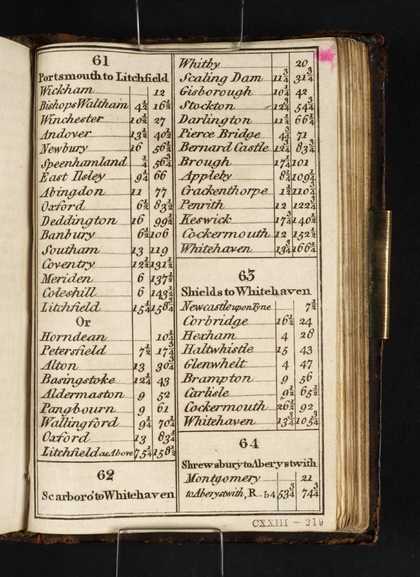 61
Portsmouth to Litchfield
Wickham 12
Bishops Waltham 4½ 16½
Winchester 10½ 27
Andover 13½ 40½
Newbury 16 56½
Speenhamland ¼ 56¾
East Ilsley 9¼ 66
Abingdon 11 77
Oxford 6½ 83½
Deddington 16 99½
Banbury 6½ 106
Southam 13 119
Coventry 12½ 131½
Meriden 6 137½
Coleshill 6 143½
Litchfield 15¼ 158¾
Or
Horndean 10¼
Petersfield 7½ 17¾
Alton 13 30¾
Basingstoke 12¼ 43
Aldermaston 9 52
Pangbourn 9 61
Wallingford 9¼ 70¼
Oxford 13 83¼
Litchfield as Above 75¼ 158½
62
Scarboro' to Whitehaven
Whitby 20
Scaling Dam 11¾ 31¾
Gisborough 10¼ 42
Stockton 12¾ 54¾
Darlington 11½ 66¼
Pierce Bridge 4¾ 71
Bernard Castle 12¾ 83¾
Brough 17¼ 101
Appleby 8¼ 109¼
Crackenthorpe 1½ 110¾
Penrith 12 122¾
Keswick 17¾ 140½
Cockermouth 12 152½
Whitehaven 13¾ 166¼
63
Shields to Whitehaven
Newcastle upon Tyne 7½
Corbridge 16½ 24
Hexham 4 28
Haltwhistle 15 43
Glenwhelt 4 47
Brampton 9 56
Carlisle 9½ 65½
Cockermouth 26½ 92
Whitehaven 13¾ 105¾
64
Shrewsbury to Aberystwith
Montgomery 21
to Aberystwith, R_54 53¾ 74¾
CXXIII - 219